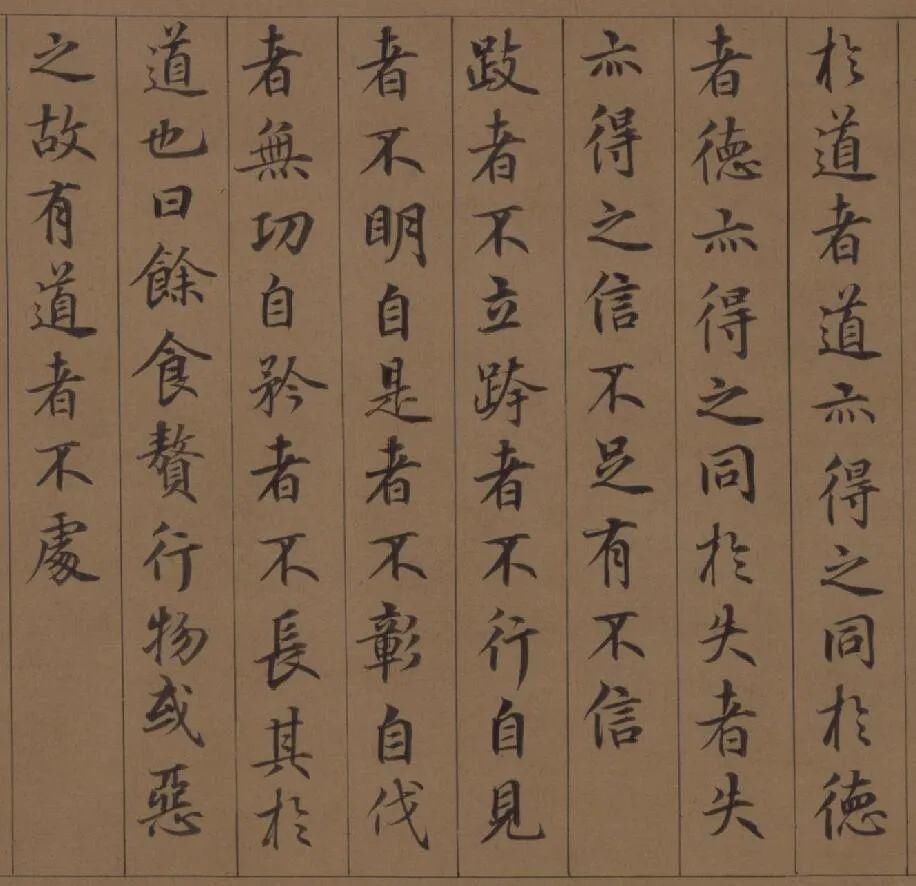 於道者道亦得之同於德
者德亦得之同於失者失
亦得之信不足有不信
跂者不立跨者不行自見
者不明自是者不彰自伐
者無功自矜者不長其於
道也曰餘食贅行物或惡
之故有道者不處